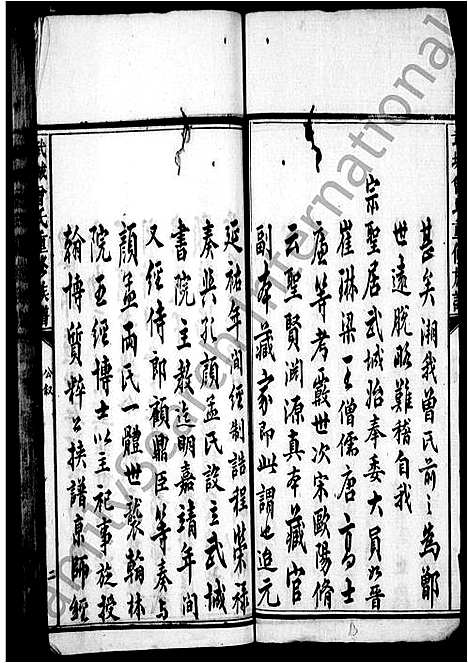 甚矣湘我曾氏前之為鄫
世遠脫略難稽自我
宗聖居武城始奉委大員如晉
崔琳梁王僧儒唐高士
廉等考嚴世次宋歐陽脩
云聖賢淵源真本藏官
副本藏家即此謂也迨元
延祐年間經制誥程榮祿
奏與孔顏孟氏設主武城
書院主教迄明嘉靖年間
又經侍郎顧鼎臣等奏與
顏孟兩氏一體世襲翰林
院五經博士以主祀事旋授
翰博質粹公挾譜東歸經
武城曾氏重修族譜
公叙
二